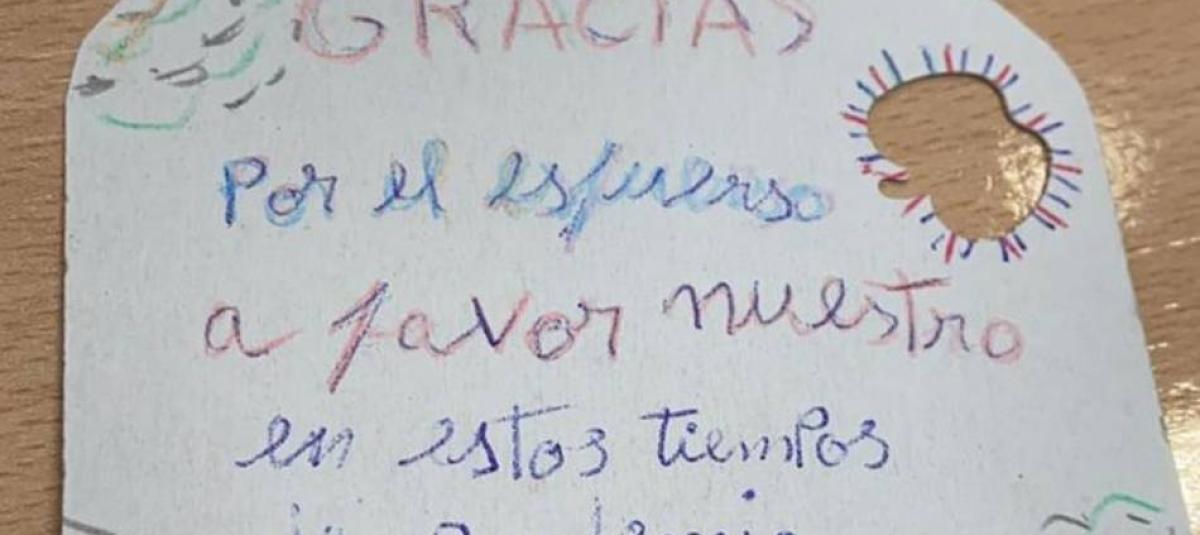 GRACIAS
Por el esfuerso
a favor nuestro
en estos tiempos